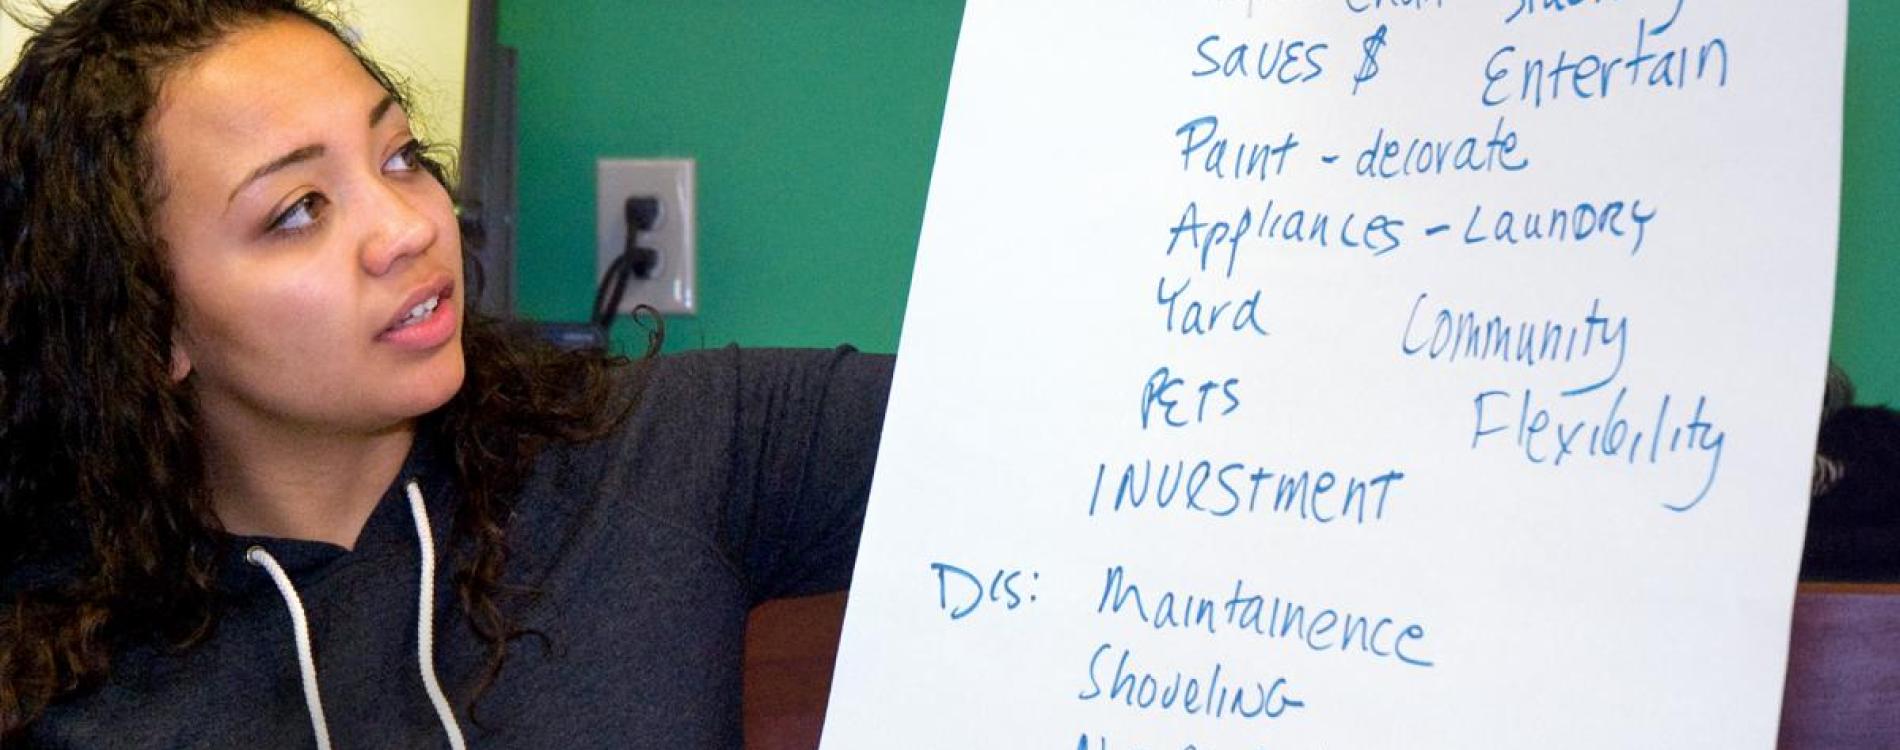 Saves $ Entertain
Paint - decorate
Appliances - Laundry
Yard Community
Pets Flexibility
INVeStment
Dis: Maintainence
ShoveliNG